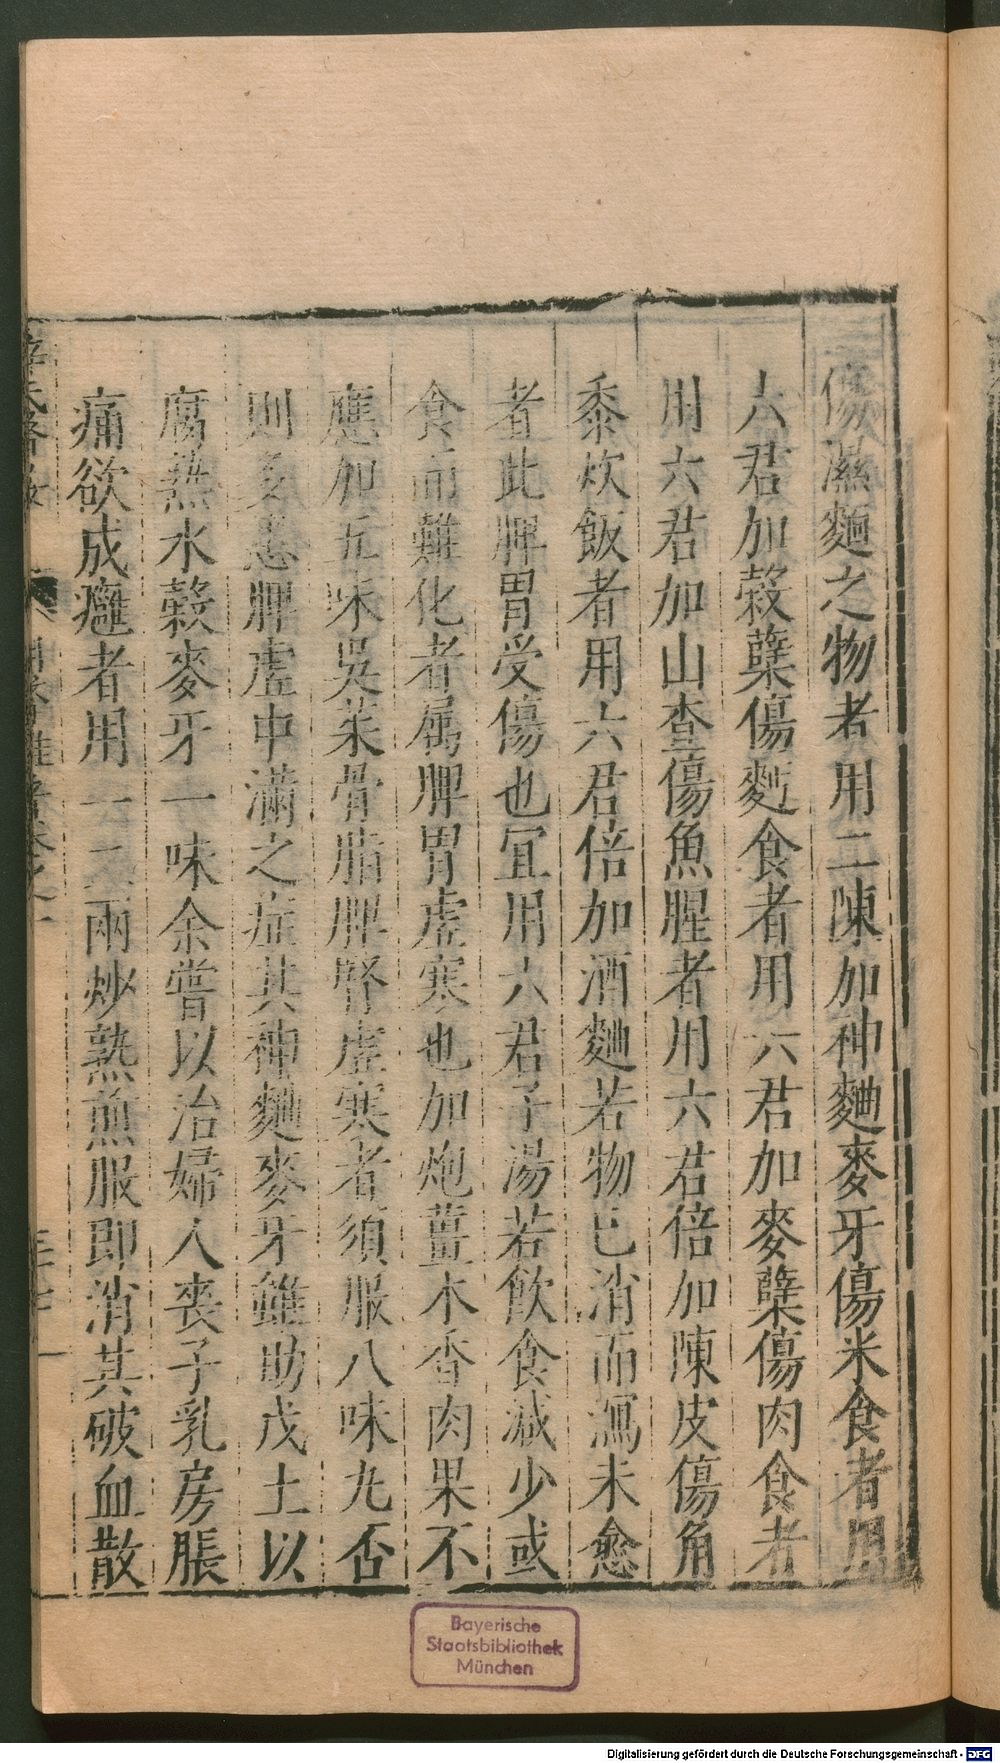 傷濕麵之物者用二陳加神麯麥牙傷米食者用
六君加穀糵傷麪食者用六君加麥糵傷肉食者
用六君加山查傷魚腥者用六君倍加陳皮傷角
黍炊飯者用六君倍加酒麯若物已消而瀉未愈
者此脾胃受傷也宜用六君子湯若飲食減少或
食而難化者属脾胃虛寒也加炮薑木香肉果不
應加五味吳茱骨脂脾腎虛寒者須服八味丸否
則多患脾虛中滿之症其神麯麥牙雖助戊土以
腐熟水穀麥牙一味余嘗以治婦人喪子乳房脹
痛欲成癰者用一二兩炒熟煎服即消其破血散
薛氏醫按
三十一
Bayerische
Staatsbibliothek
München
Digitalisierung gefördert durch die Deutsche Forschungsgemeinschaft - DFG